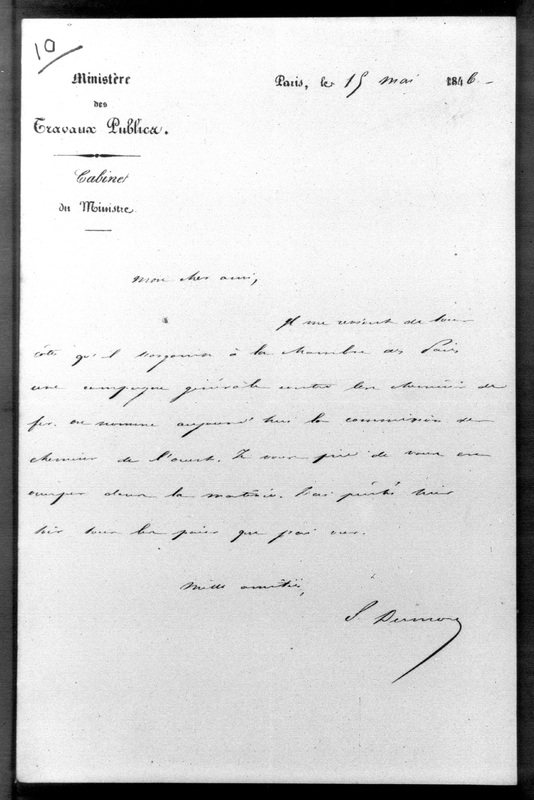 10
Ministère
des
Travaux Publics.
Cabinet
du Ministre.
Paris, le 15 mai 1846
Mon cher ami,
Il me revient de tous
côtés qu'il s'organise à la chambre des Pairs
une campagne générale contre les chemins de
fer. On nomme aujourd'hui la commission du
chemin de l'ouest. Je vous prie de vous en
occuper dans la matinée. J'ai prêché hier
soir tous les pairs que j'ai vus.
Mille amitiés,
S. Dumon